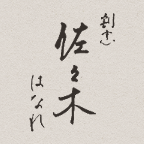 割烹
佐々木
はなれ